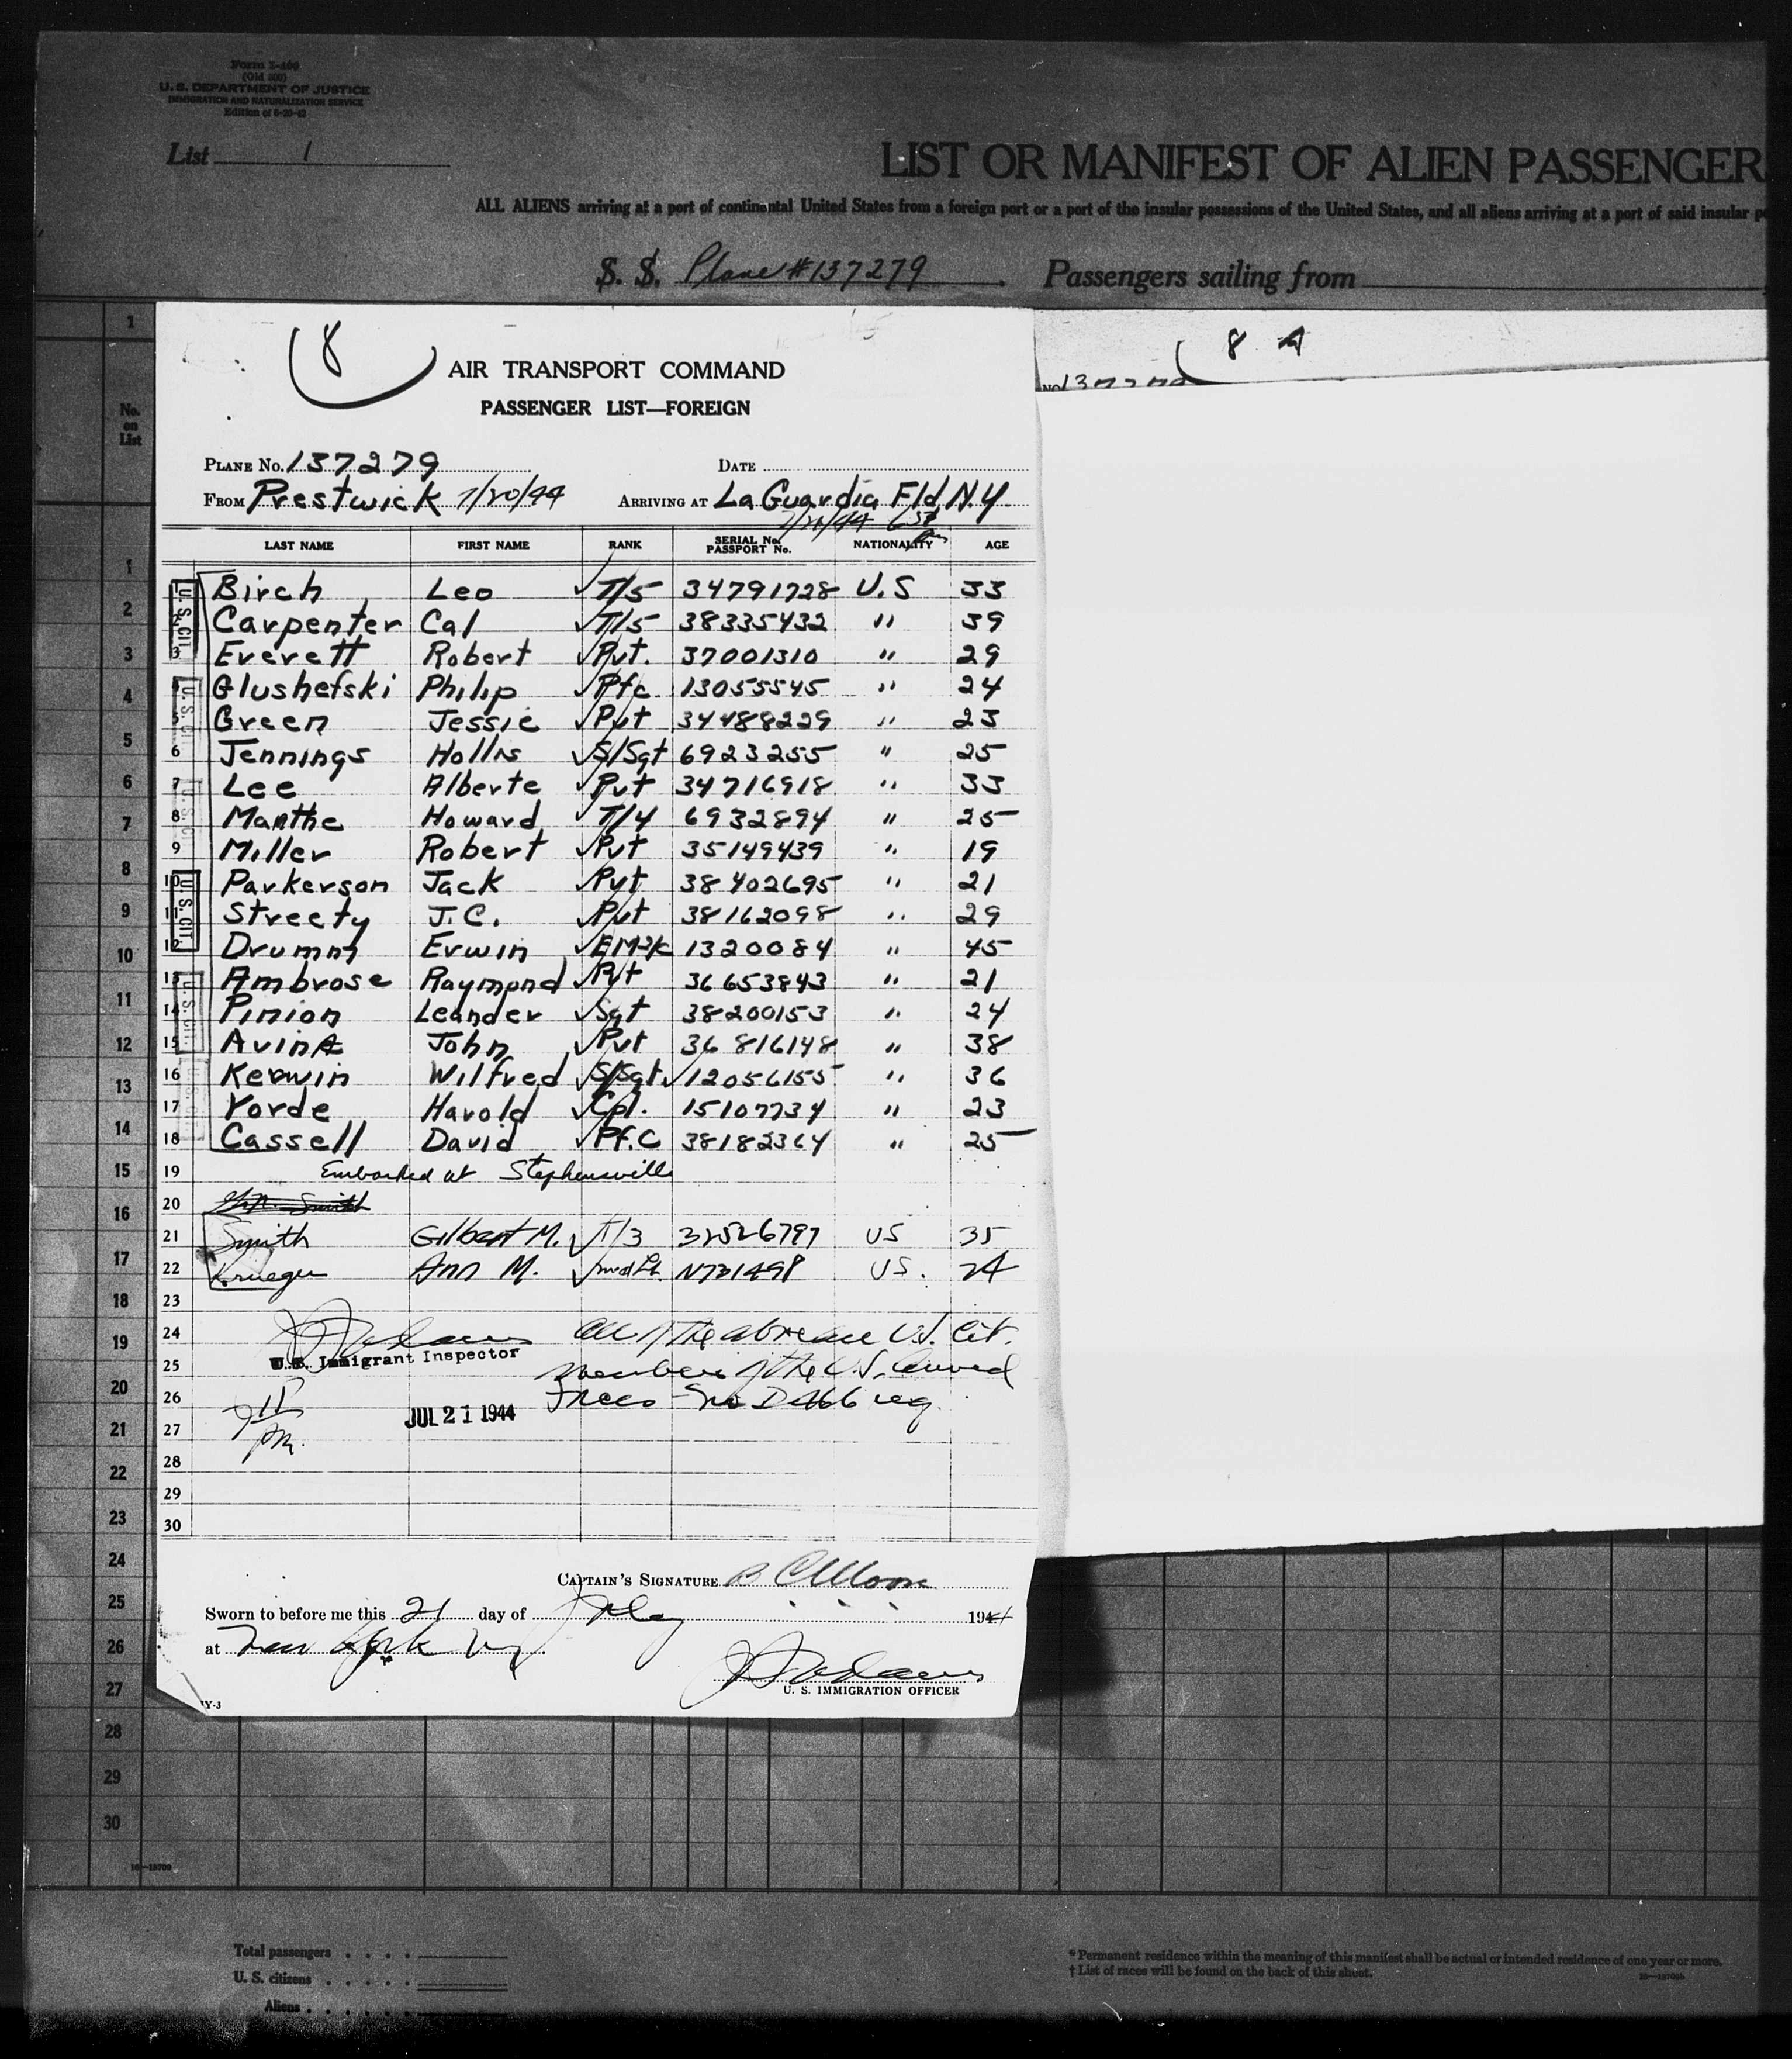 Form I-466
(Old 500)
U. S. DEPARTMENT OF JUSTICE
IMMIGRATION AND NATURALIZATION SERVICE
List 1
LIST OR MANIFEST OF ALIEN PASSENGER
ALL ALIENS arriving at a port of continental United States from a foreign port or a port of the insular possessions of the United States, and all aliens arriving at a port of said insular
S. S. Plane #137279 Passengers sailing from
8
8 A
AIR TRANSPORT COMMAND
PASSENGER LIST—FOREIGN
PLANE NO. 137279 DATE
FROM Prestwick 7/20/44 ARRIVING AT La Guardia Fld N.Y.
7/21/44
LAST NAME FIRST NAME RANK SERIAL No. PASSPORT No. NATIONALITY AGE
1 Birch Leo T/5 34791728 U.S 33
2 Carpenter Cal T/5 38335432 " 39
3 Everett Robert Pvt. 37001310 " 29
4 Glushefski Philip Pfc 13055545 " 24
5 Green Jessie Pvt 34488229 " 23
6 Jennings Hollis S/Sgt 6923255 " 25
7 Lee Alberte Pvt 34716918 " 33
8 Manthe Howard T/4 6932894 " 25
9 Miller Robert Pvt 35149439 " 19
10 Parkerson Jack Pvt 38402695 " 21
11 Streety J.C. Pvt 38162098 " 29
12 Drumm Erwin EM2/c 1320084 " 45
13 Ambrose Raymond Pvt 36653843 " 21
14 Pinion Leander Sgt 38200153 " 24
15 Avina John Pvt 36816148 " 38
16 Kerwin Wilfred S/Sgt. 12056155 " 36
17 Yorde Harold Cpl. 15107734 " 23
18 Cassell David Pf.C 38182364 " 25
19 Embarked at Stephensville
20 Smith
21 Smith Gilbert M. T/3 32526797 US 35
22 Krueger Ann M. N731498 US. 24
23
24 All of the above are U.S. Cit.
25 members of the U.S. Armed
U.S. Immigrant Inspector
26 Forces - No I 466 req.
JUL 21 1944
27
28
29
30
CAPTAIN'S SIGNATURE
Sworn to before me this 21 day of July 1944
at New York NY.
U. S. IMMIGRATION OFFICER
NY-3
No. on List
1
2
3
4
5
6
7
8
9
10
11
12
13
14
15
16
17
18
19
20
21
22
23
24
25
26
27
28
29
30
Total passengers
U. S. citizens
Aliens
* Permanent residence within the meaning of this manifest shall be actual or intended residence of one year or more.
† List of races will be found on the back of this sheet.